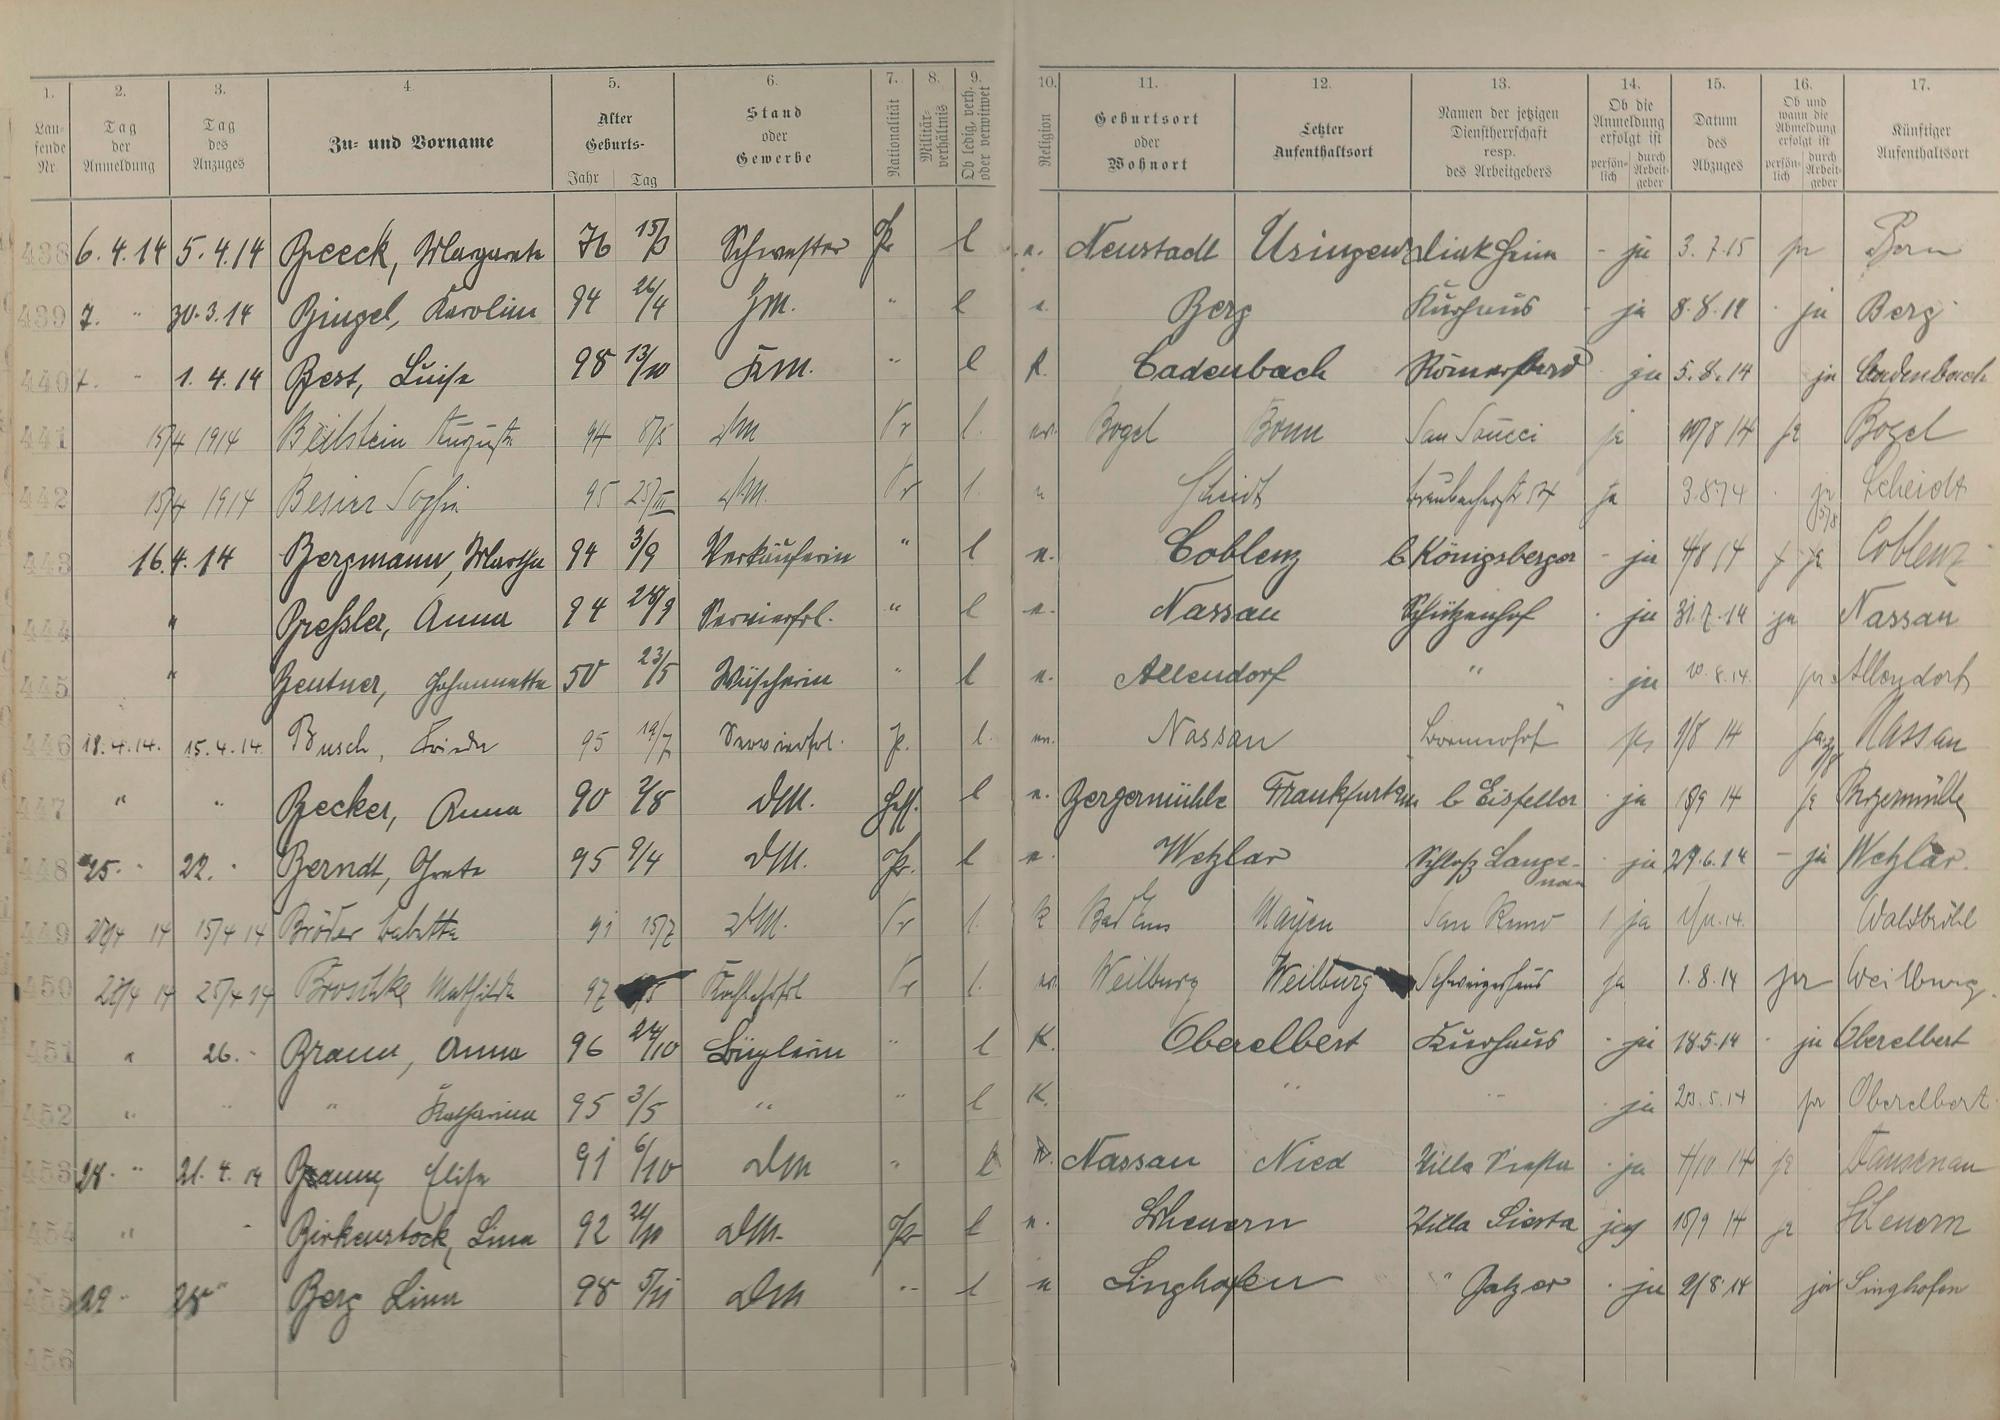 1. 2. 3. 4. 5. 6. 7. 8. 9. 10. 11. 12. 13. 14. 15. 16. 17.
Laufende Nr. Tag der Anmeldung Tag des Anzuges Zu- und Vorname Alter Geburts- Jahr Tag Stand oder Gewerbe Nationalität Militärverhältnis Ob ledig, verh. oder verwitwet Religion Geburtsort oder Wohnort Letzter Aufenthaltsort Namen der jetzigen Dienstherrschaft resp. des Arbeitgebers Ob die Anmeldung erfolgt ist persönlich durch Arbeitgeber Datum des Abzuges Ob und wann die Abmeldung erfolgt ist persönlich durch Arbeitgeber Künftiger Aufenthaltsort
438 6. 4. 14 5. 4. 14 Margarete 76 15/3 Schwester Pr. l e. Neustadt Usingen - ja 3. 7. 15
439 7. " 30. 3. 14 Bingel, Karoline 94 26/4 " l e. Berg Kurhaus - ja 8. 8. 14 · ja Berg
440 7. " 1. 4. 14 Best, Luise 98 13/10 " l k. Cadenbach Römerbad · ja 5. 8. 14 ja Cadenbach
441 15/4 1914 Beilstein Auguste 94 8/5 DM Pr l. ev. Bogel Bonn San Soucci ja 10/8 14 ja Bogel
442 15/4 1914 Besier Sophie 95 25/III DM. Pr l. " Scheidt ja 3.8.14 · ja Scheidt
443 16. 4. 14 Bergmann, Martha 94 3/9 Verkäuferin " l e. Coblenz b Königsberger - ja 4/8 14 ja Coblenz
444 " Bressler, Anna 94 28/9 Servierfrl. " l e. Nassau Schützenhof · ja 31. 7. 14 ja Nassau
445 " Bentner, Johannette 50 23/5 Wäscherin " l e. Allendorf " · ja 10. 8. 14. ja Allendorf
446 18. 4. 14. 15. 4. 14. Busch, Frieda 95 19/7 Servierfrl. P. l. ev. Nassau ja 1/8 14 ja Nassau
447 " " Becker, Anna 90 2/8 DM. Hess. l e. Bergermühle Frankfurt b Eisfeller · ja 18/9 14 ja Bergermühle
448 25. " 22. " Berndt, Grete 95 9/4 DM. Pr. l e. Wetzlar Schloss Langenau · ja 29. 6. 14 - ja Wetzlar.
449 15/4 14 Bröder Babette 91 15/7 DM. Pr l. k Bad Ems Mayen San Remo ja 1/11. 14. Waldbröhl
450 28/4 14 25/4 14 Mathilde 97 Pr l. ev. Weilburg Weilburg Schweizerhaus ja 1. 8. 14 ja Weilburg.
451 " 26. " Braun, Anna 96 24/10 Büglerin " l K. Oberelbert Kurhaus · ja 18.5.14 · ja Oberelbert
452 " " " Katharina 95 3/5 " " l K. " " · ja 23. 5. 14 ja Oberelbert
453 28. " 21. 4. 14 Braun, Elise 91 6/10 DM " l Nassau Nied Villa Siesta · ja 4/10 14 ja Dausenau
454 " " Birkenstock, Lina 92 24/10 DM. Pr l e. Scheuern Villa Siesta ja 15/9 14 ja Scheuern
455 29 " 28 " Berg Lina 98 5/11 DM " l e Singhofen " Balzer · ja 2/8 14 ja Singhofen
456